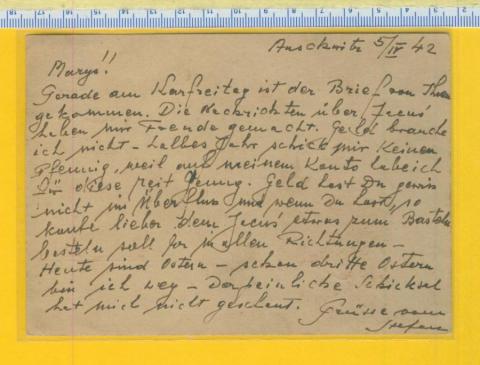 Auschwitz 5/IV 42
Marys!!
Gerade am Karfreitag ist der Brief von Ihm
gekommen. Die Nachrichten über Jesus
haben mir Freude gemacht. Geld brauche
ich nicht - halbes Jahr schick mir keinen
Pfennig, weil auf meinem Konto habe ich
für diese Zeit genug. Geld hast Du gewiss
nicht im Überfluss und wenn Du hast, so
kaufe lieber dem Jesus etwas zum Basteln
basteln soll er in allen Richtungen -
Heute sind Ostern - schon dritte Ostern
bin ich weg - Das peinliche Schicksel
hat mich nicht geschont. Grüsse vom
Stefan